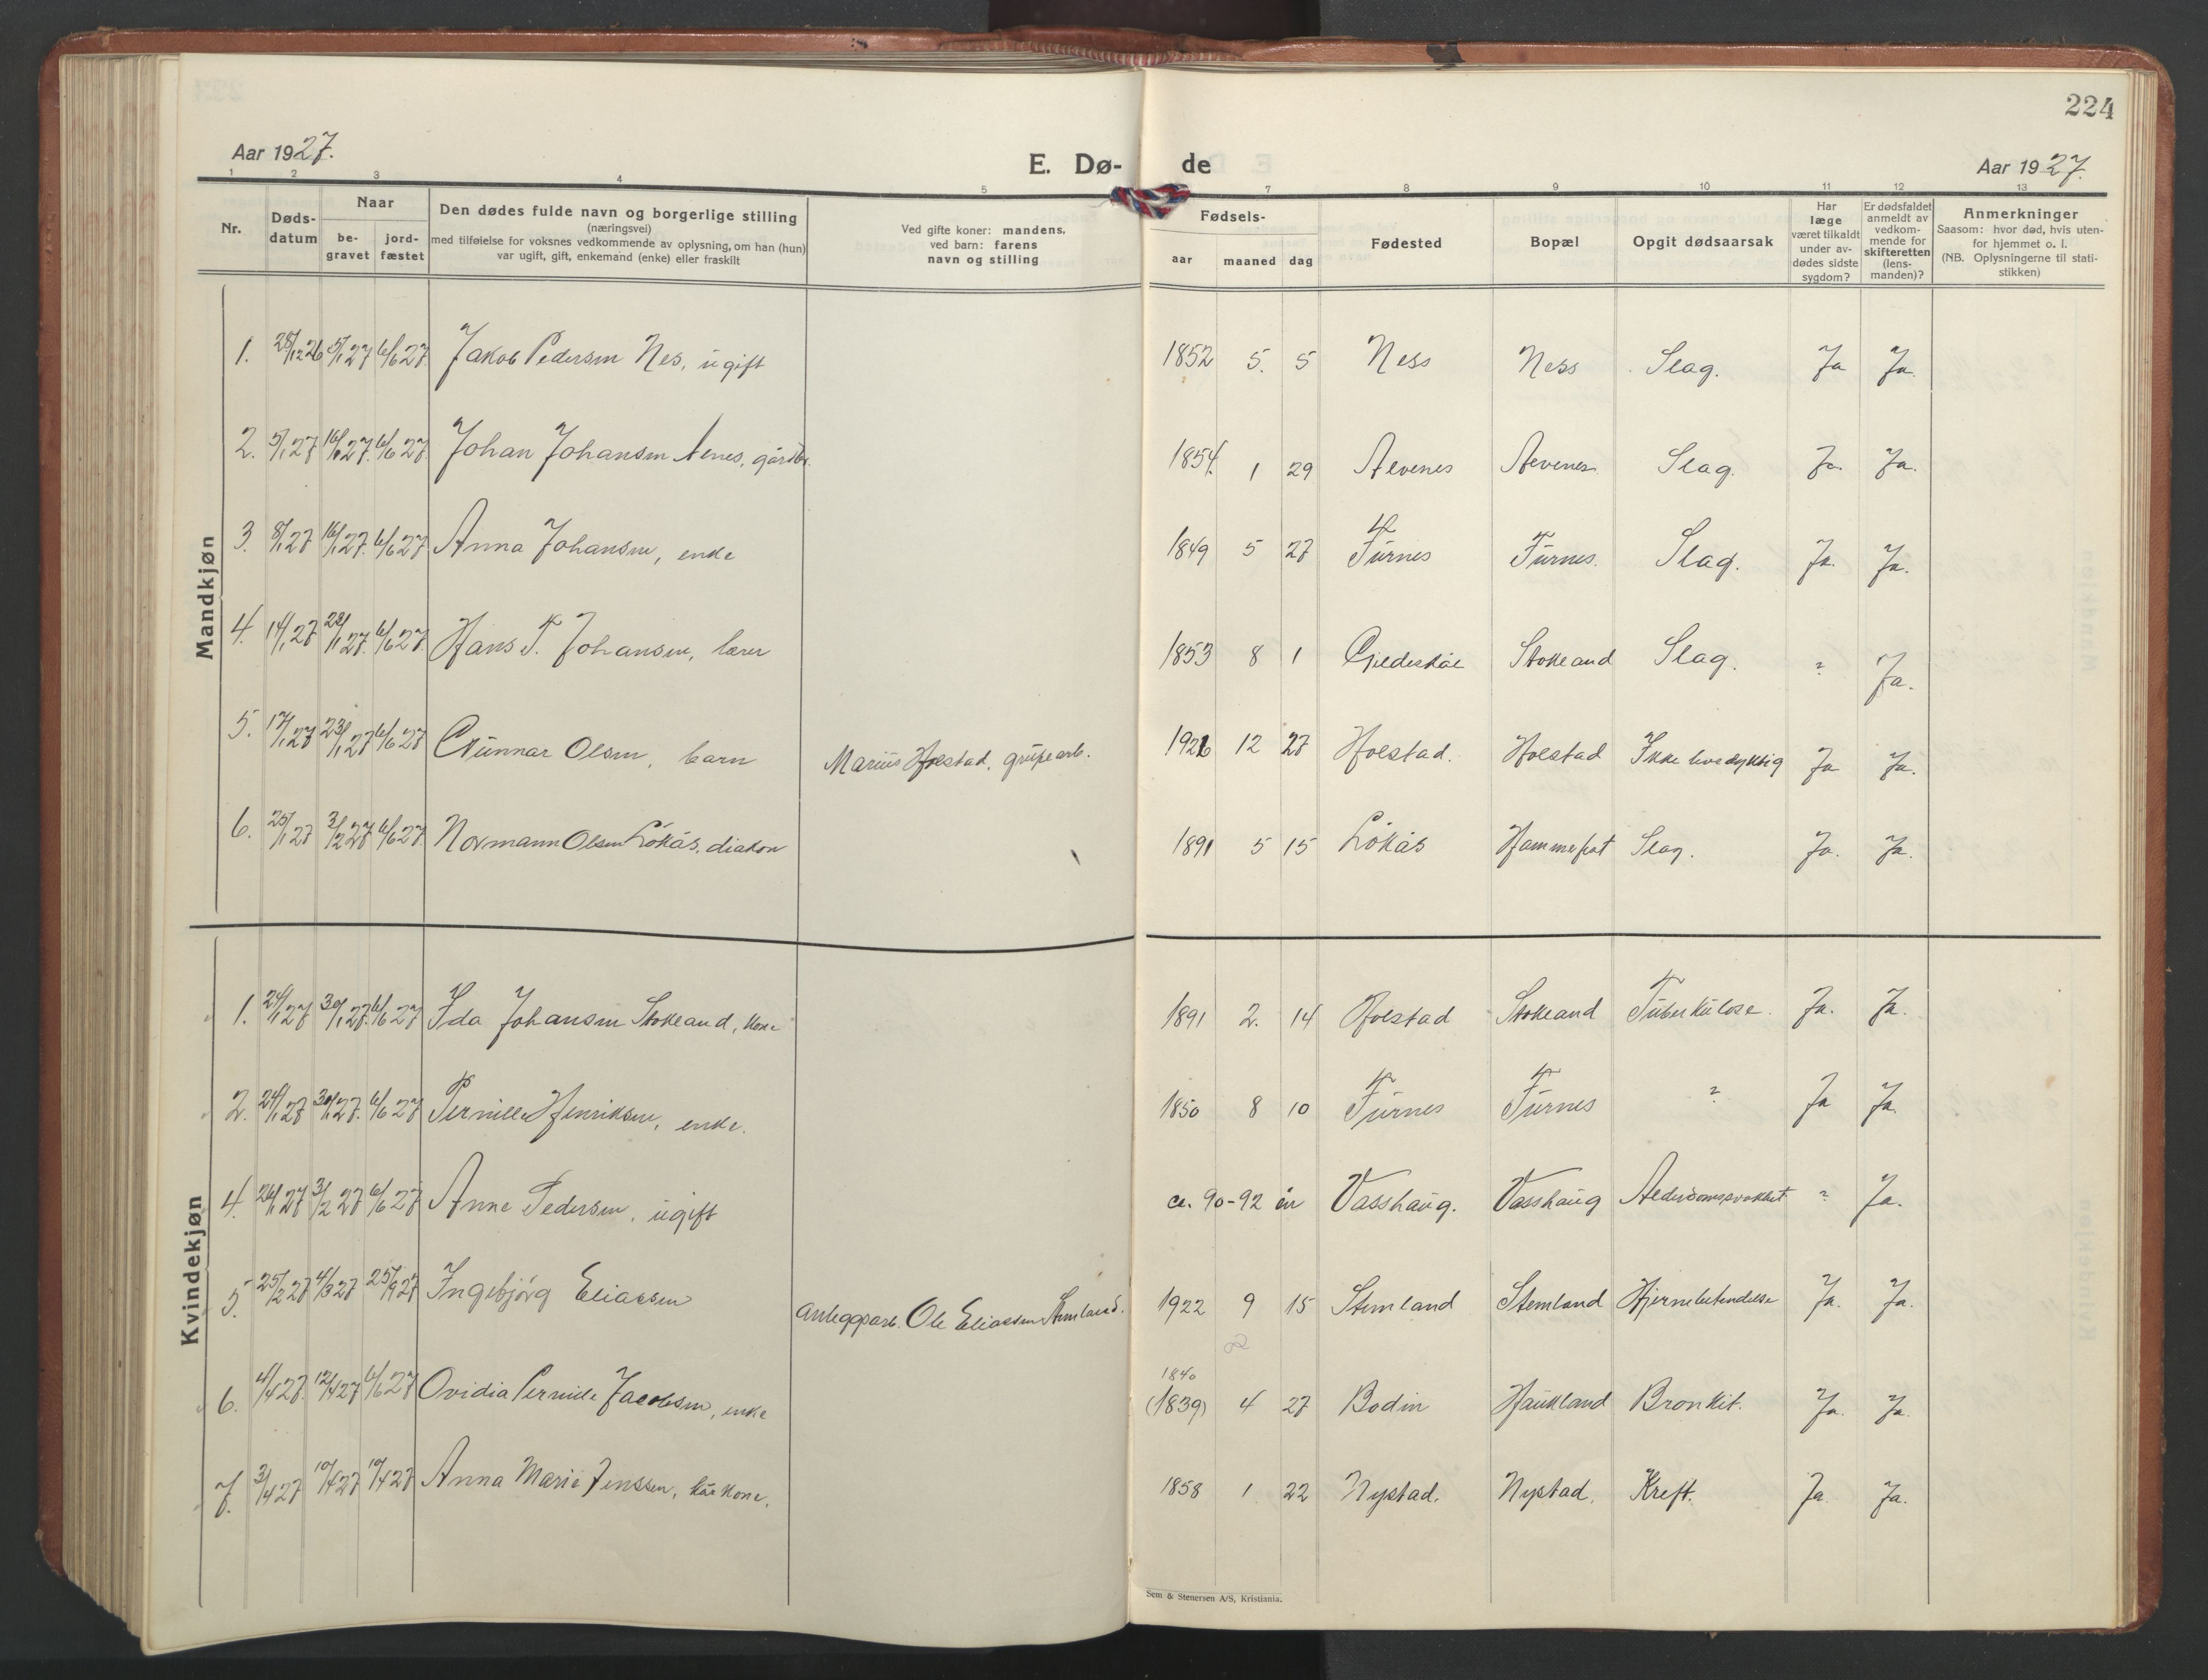 224
Aar 1927.
E. Dø- de
Aar 1927.
1 2 3 4 5 7 8 9 10 11 12 13
Nr.
Døds-
datum
Naar
be-
gravet
jord-
fæstet
Den dødes fulde navn og borgerlige stilling
(næringsvei)
med tilføielse for voksnes vedkommende av oplysning, om han (hun)
var ugift, gift, enkemand (enke) eller fraskilt
Ved gifte koner: mandens,
ved barn: farens
navn og stilling
Fødsels-
aar maaned dag
Fødested
Bopæl
Opgit dødsaarsak
Har
læge
været tilkaldt
under av-
dødes sidste
sygdom?
Er dødsfaldet
anmeldt av
vedkom-
mende for
skifteretten
(lens-
manden)?
Anmerkninger
Saasom: hvor død, hvis uten-
for hjemmet o. l.
(NB. Oplysningerne til stati-
stikken)
Mandkjøn
1. 28/12 26 5/1 27 6/6 27. Jakob Pedersen Nes, ugift 1852 5. 5 Ness Ness Slag. Ja Ja.
2. 5/1 27 16/1 27. 6/6 27. Johan Johansen gårdbr. 1854 1 29 Alvenes Slag. Ja. Ja.
3. 8/1 27 16/1 27. 6/6 27 Anna Johansen, enke 1849 5 27 Furnes Furnes. Slag. Ja. Ja.
4. 14/1 27 6/6 27. Hans T. Johansen, lærer 1853 8 1 Gildeskål Stokland Slag. ? Ja.
5. 17/1 27 23/1 27 6/6 27 Gunnar Olsen, barn Marius Holstad, grubearb. 1926 12 27 Holstad. Holstad Ikke livsdyktig Ja Ja.
6. 25/1 27 3/2 27 6/6 27. Normann Olsen Løkås, diakon 1891 5 15 Løkås Hammerfest Slag. Ja. Ja.
Kvindekjøn
1. 24/1 27 30/1 27. 6/6 27 Ida Johansen Stokland, kone 1891 2. 14 Holstad Stokland Tuberkulose. Ja. Ja.
2. 24/1 27 30/1 27. 6/6 27 Pernille Henriksen, enke. 1850 8 10 Furnes Furnes ? Ja Ja.
4. 26/1 27 3/2 27 6/6 27 Anne Pedersen, ugift ca. 90-92 år Vasshaug. Vasshaug Alderdomssvakhet ? Ja.
5. 25/2 27 4/3 27 25/9 27 Ingebjørg Eliassen Anleggsarb. Ole Eliassen Stemland. 1922 9 15 Stemland Stemland Hjernebetendelse Ja. Ja.
1840
6. 4/4 27. 12/4 27 6/6 27 Ovidia Pernille Jacobsen, enke (1839) 4 27 Bodin Haukland Bronkit. Ja. Ja.
7. 3/4 27 10/4 27 10/4 27 Anna Marie Jenssen, kårkone. 1858 1 22 Nystad. Nystad. Kreft. Ja. Ja.
Sem & Stenersen A/S, Kristiania.